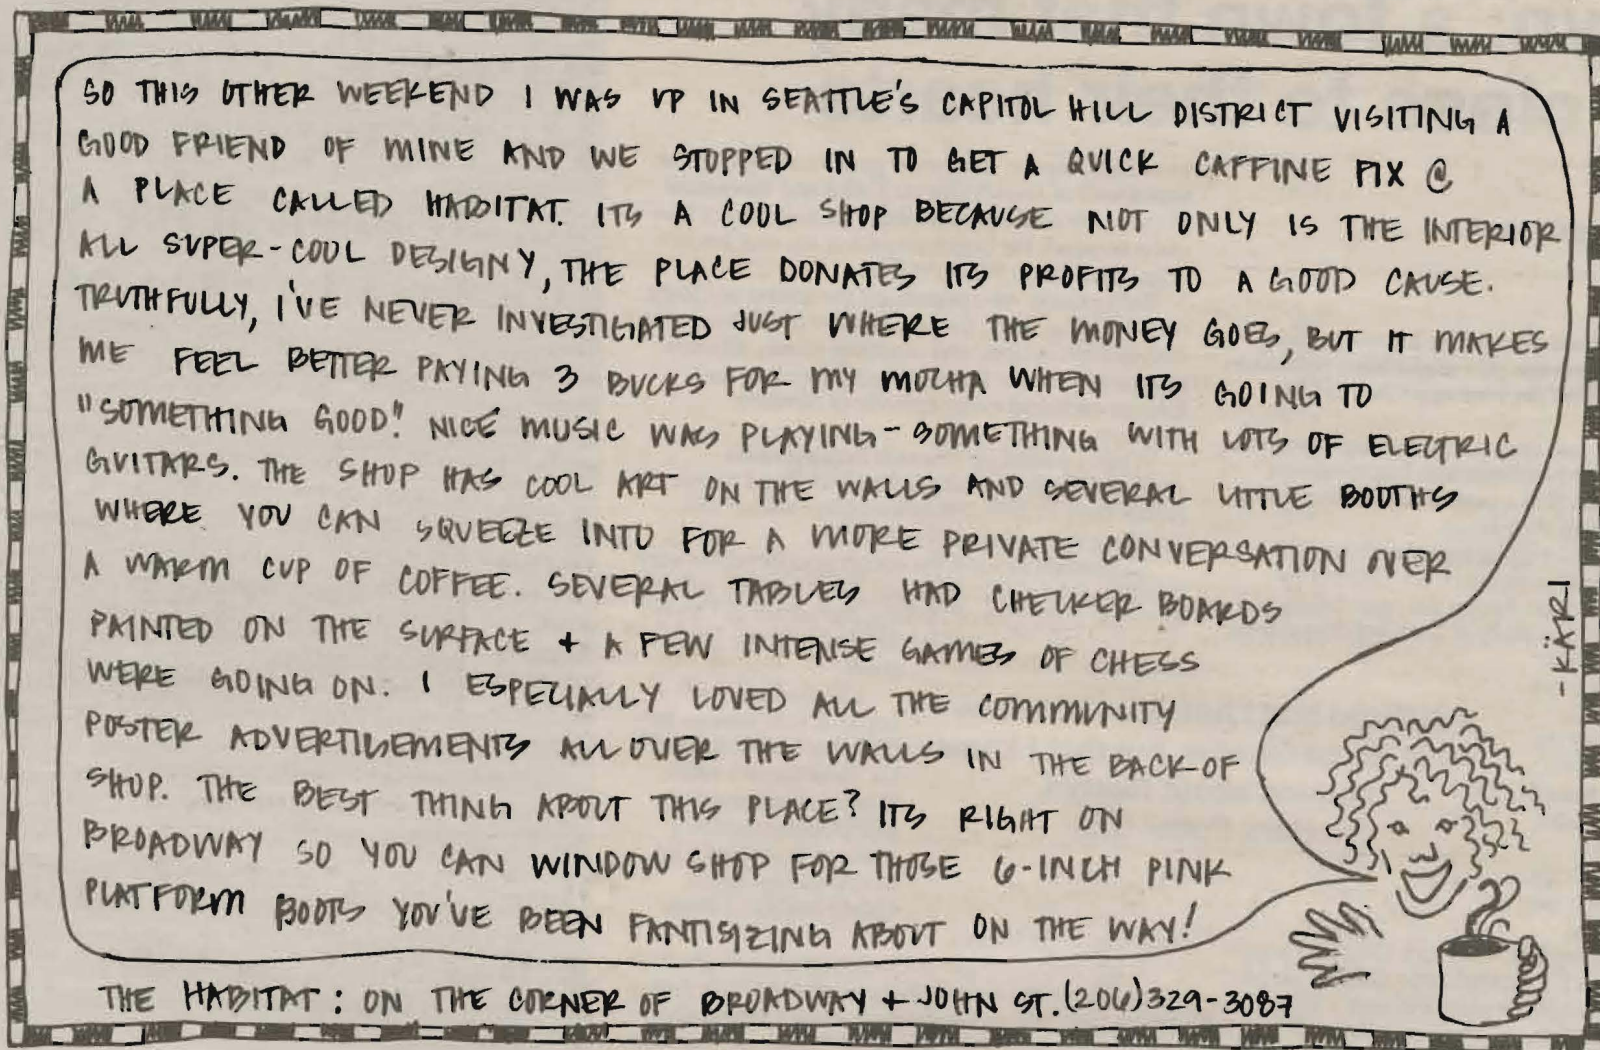 SO THIS OTHER WEEKEND I WAS UP IN SEATTLE'S CAPITOL HILL DISTRICT VISITING A
GOOD FRIEND OF MINE AND WE STOPPED IN TO GET A QUICK CAFFINE FIX @
A PLACE CALLED HABITAT. ITS A COOL SHOP BECAUSE NOT ONLY IS THE INTERIOR
ALL SUPER-COOL DESIGNY, THE PLACE DONATES ITS PROFITS TO A GOOD CAUSE.
TRUTHFULLY, I'VE NEVER INVESTIGATED JUST WHERE THE MONEY GOES, BUT IT MAKES
ME FEEL BETTER PAYING 3 BUCKS FOR MY MOCHA WHEN ITS GOING TO
"SOMETHING GOOD". NICE MUSIC WAS PLAYING - SOMETHING WITH LOTS OF ELECTRIC
GUITARS. THE SHOP HAS COOL ART ON THE WALLS AND SEVERAL LITTLE BOOTHS
WHERE YOU CAN SQUEEZE INTO FOR A MORE PRIVATE CONVERSATION OVER
A WARM CUP OF COFFEE. SEVERAL TABLES HAD CHECKER BOARDS
PAINTED ON THE SURFACE + A FEW INTENSE GAMES OF CHESS
WERE GOING ON. I ESPECIALLY LOVED ALL THE COMMUNITY
POSTER ADVERTISEMENTS ALL OVER THE WALLS IN THE BACK OF
SHOP. THE BEST THING ABOUT THIS PLACE? ITS RIGHT ON
BROADWAY SO YOU CAN WINDOW SHOP FOR THOSE 6-INCH PINK
PLATFORM BOOTS YOU'VE BEEN FANTISIZING ABOUT ON THE WAY!
-KÄRI
THE HABITAT: ON THE CORNER OF BROADWAY + JOHN ST. (206) 329-3087